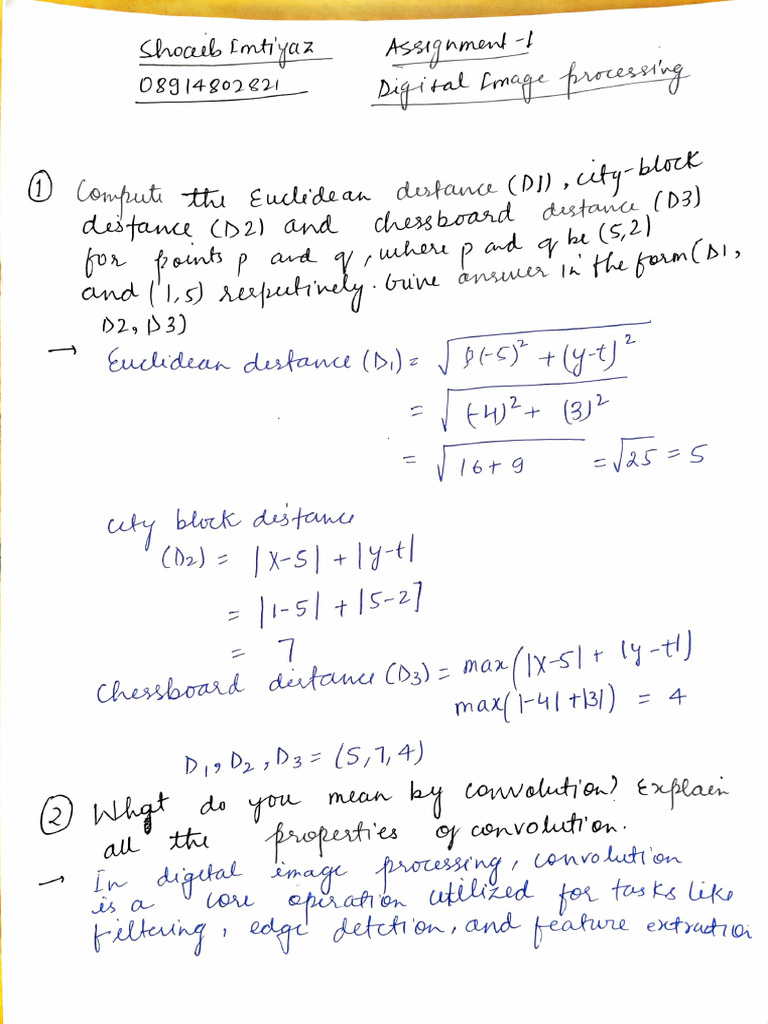 Shoaib Imtiyaz
Assignment-1
08914802821
Digital Image processing
① Compute the Euclidean distance (D1), city-block
distance (D2) and chessboard distance (D3)
for points p and q, where p and q be (5,2)
and (1,5) respectively. Give answer in the form (D1,
D2, D3)
→ Euclidean distance (D1) = √(-5)² + (y-t)²
= √(-4)² + (3)²
= √16+9 = √25 = 5
city block distance
(D2) = |x-5| + |y-t|
= |1-5| + |5-2]
= 7
Chessboard distance (D3) = max(|x-5| + |y-t|)
max(|-4| + |3|) = 4
D1, D2, D3 = (5,7,4)
② What do you mean by convolution? Explain
all the properties of convolution.
→ In digital image processing, convolution
is a core operation utilized for tasks like
filtering, edge detction, and feature extraction